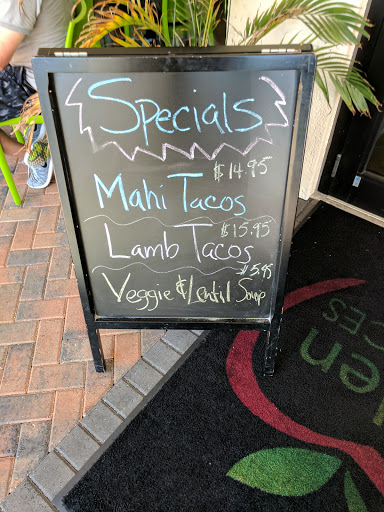 Specials
$14.95
Mahi Tacos
$15.95
Lamb Tacos
$5.95
Veggie & Lentil Soup